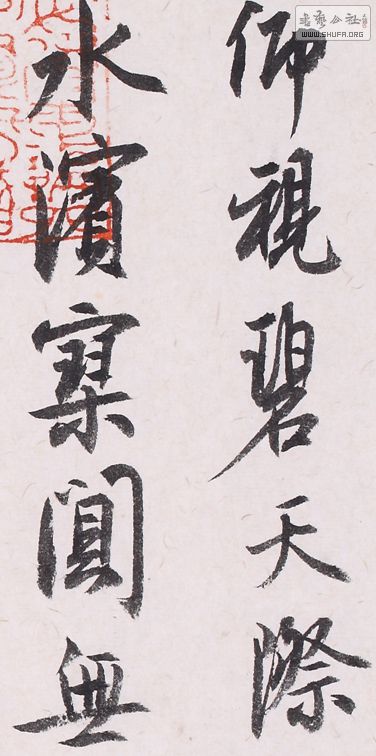 仰視碧天際
水濱寥闃無
書藝公社
WWW.SHUFA.ORG